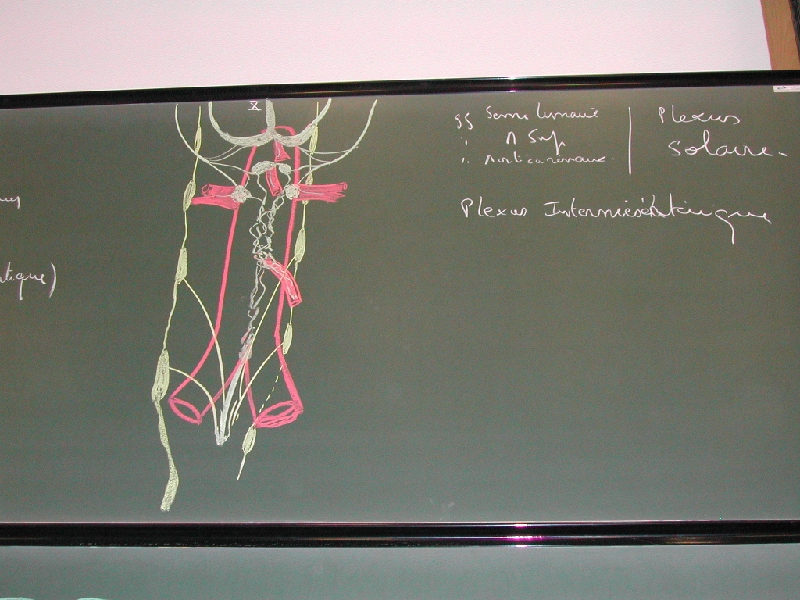 X
gg Semi lunaire
" Π Sup
" aortico rénaux
Plexus
Solaire.
Plexus Intermésentérique
tique)